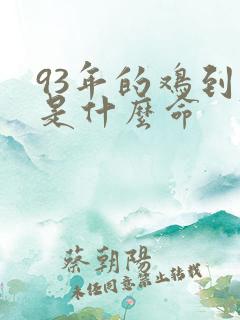 93年的鸡到
是什麼命
蔡朝陽
未经同意禁止转载